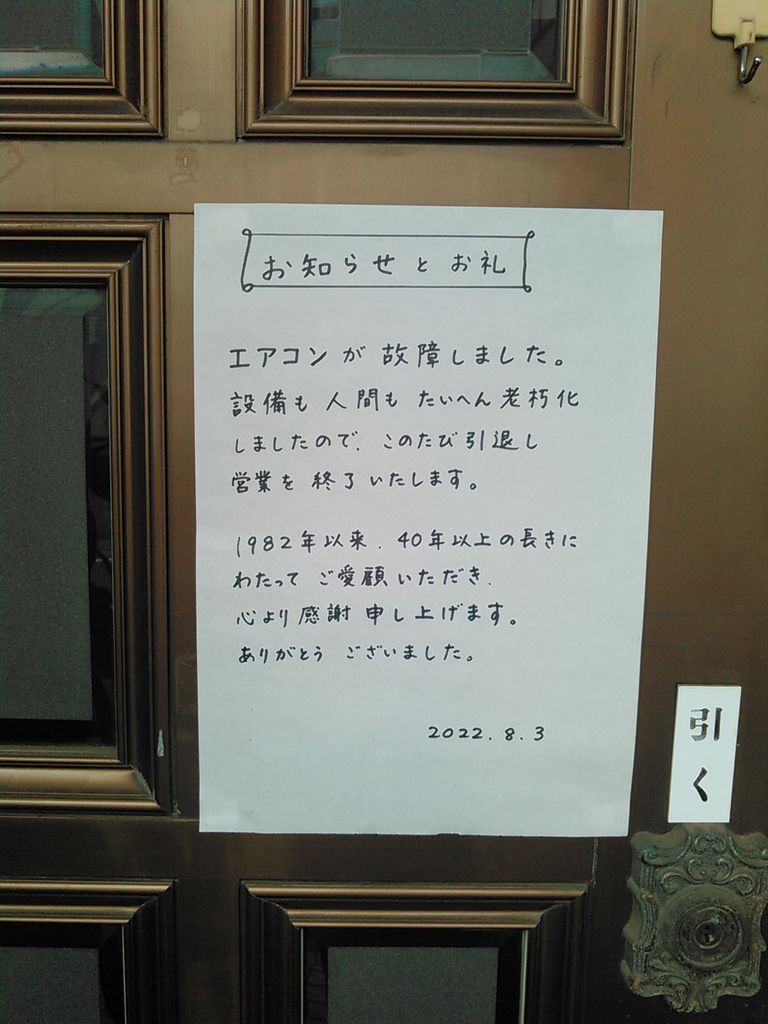 お知らせとお礼
エアコンが故障しました。
設備も人間もたいへん老朽化
しましたので、このたび引退し
営業を終了いたします。
1982年以来、40年以上の長きに
わたってご愛顧いただき、
心より感謝申し上げます。
ありがとうございました。
2022.8.3
引く